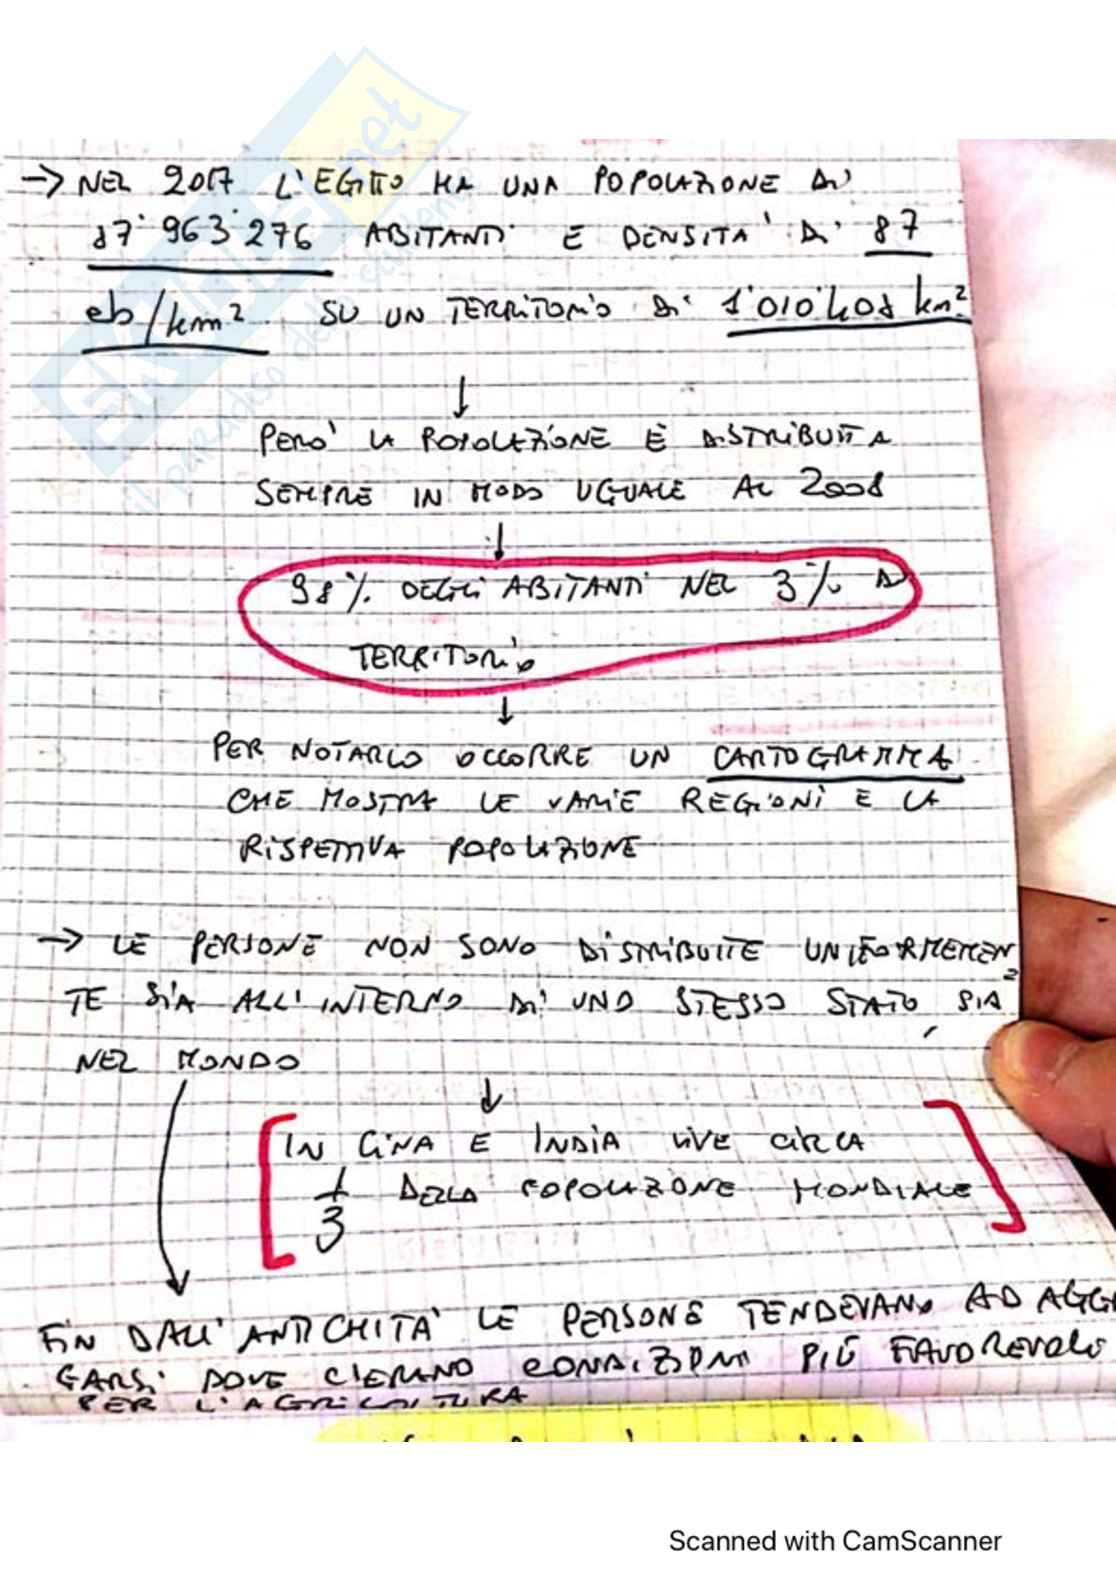 → NEL 2017 L'EGITTO HA UNA POPOLAZIONE DI
87˙963˙276 ABITANTI E DENSITA' DI 87
ab/km² SU UN TERRITORIO DI 1˙010˙408 km²
↓
PERO' LA POPOLAZIONE È DISTRIBUITA
SEMPRE IN MODO UGUALE AL 2008
↓
98% DEGLI ABITANTI NEL 3% DI
TERRITORIO
↓
PER NOTARLO OCCORRE UN CARTOGRAMMA
CHE MOSTRA LE VARIE REGIONI E LA
RISPETTIVA POPOLAZIONE
→ LE PERSONE NON SONO DISTRIBUITE UNIFORMEMEN
TE SIA ALL'INTERNO DI UNO STESSO STATO, SIA
NEL MONDO
↓
[IN CINA E INDIA VIVE CIRCA
1/3 DELLA POPOLAZIONE MONDIALE]
FIN DALL'ANTICHITA' LE PERSONE TENDEVANO AD AGGRE
GARSI DOVE C'ERANO CONDIZIONI PIÙ FAVOREVOLI
PER L'AGRICOLTURA
skuola.net
il paradiso dello studente
Scanned with CamScanner